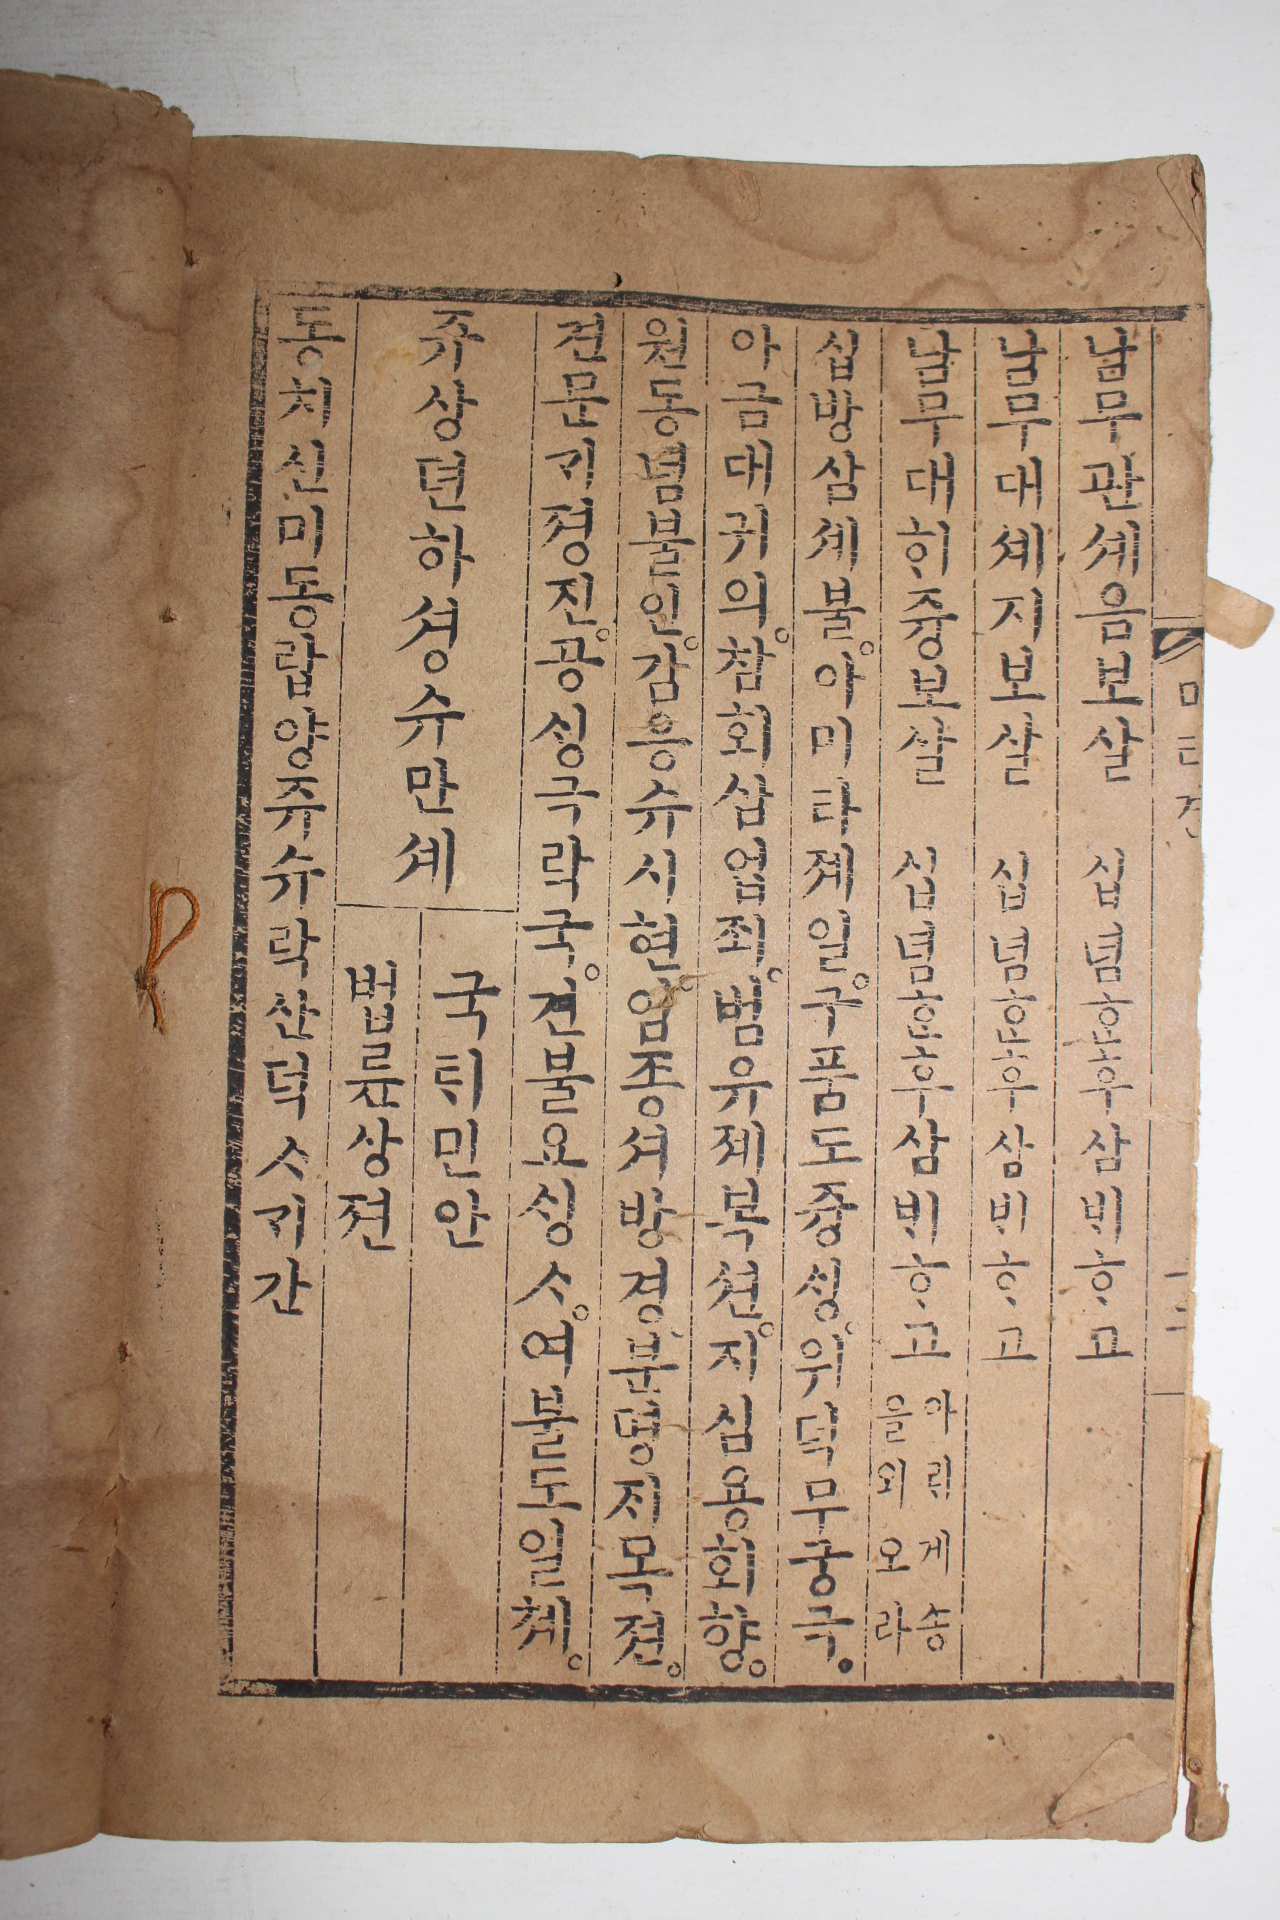 남무관셰음보살 십념ᄒᆞᆫ후삼ᄇᆡᄒᆞ고
남무대셰지보살 십념ᄒᆞᆫ후삼ᄇᆡᄒᆞ고
남무대ᄒᆡ즁보살 십념ᄒᆞᆫ후삼ᄇᆡᄒᆞ고 아ᄅᆡ게송
을외오라
십방삼셰불。아미타졔일。구품도즁ᄉᆡᆼ。위덕무궁극。
아금대귀의。참회삼업죄。범유졔복션。지심용회향。
원동념불인。감응슈시현。임죵셔방경。분명ᄌᆡ목젼。
견문ᄀᆡ졍진。공ᄉᆡᆼ극락국。견불요ᄉᆡᆼᄉᆞ。여불도일쳬。
쥬상뎐하셩슈만셰
국ᄐᆡ민안
법륜상젼
동치신미동랍양쥬슈락산덕ᄉᆞᄀᆡ간
미타경